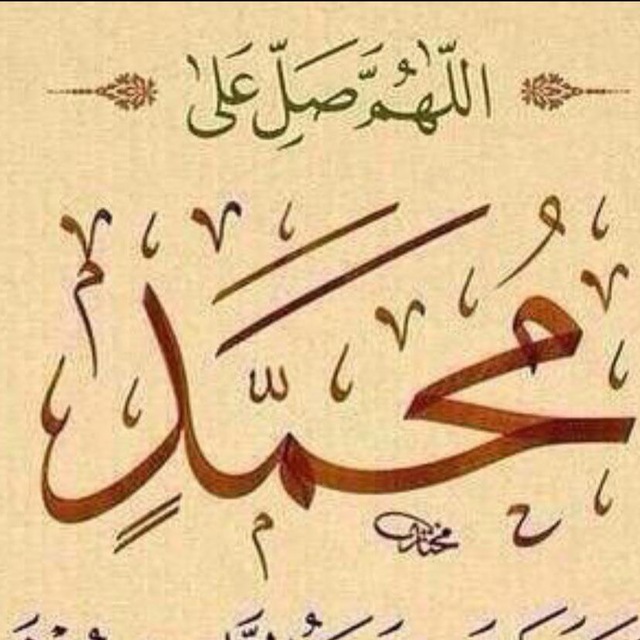 اللّٰهُمَّ صَلِّ عَلٰى
مُحَمَّدٍ